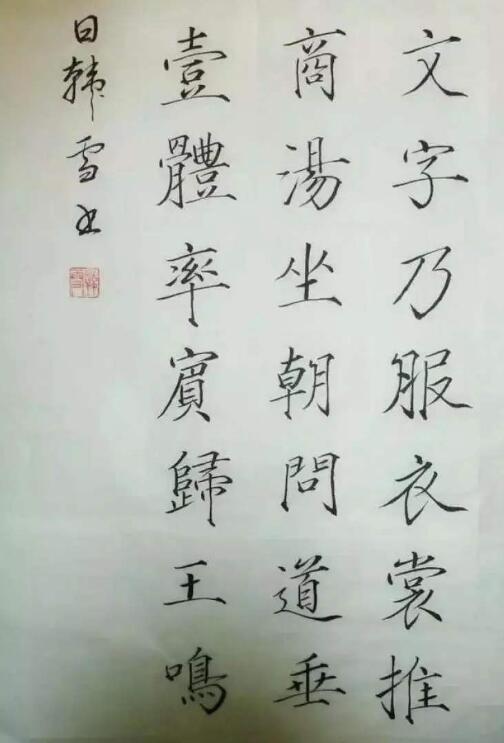 文字乃服衣裳推
商湯坐朝問道垂
壹體率賓歸王鳴
日韩雪书